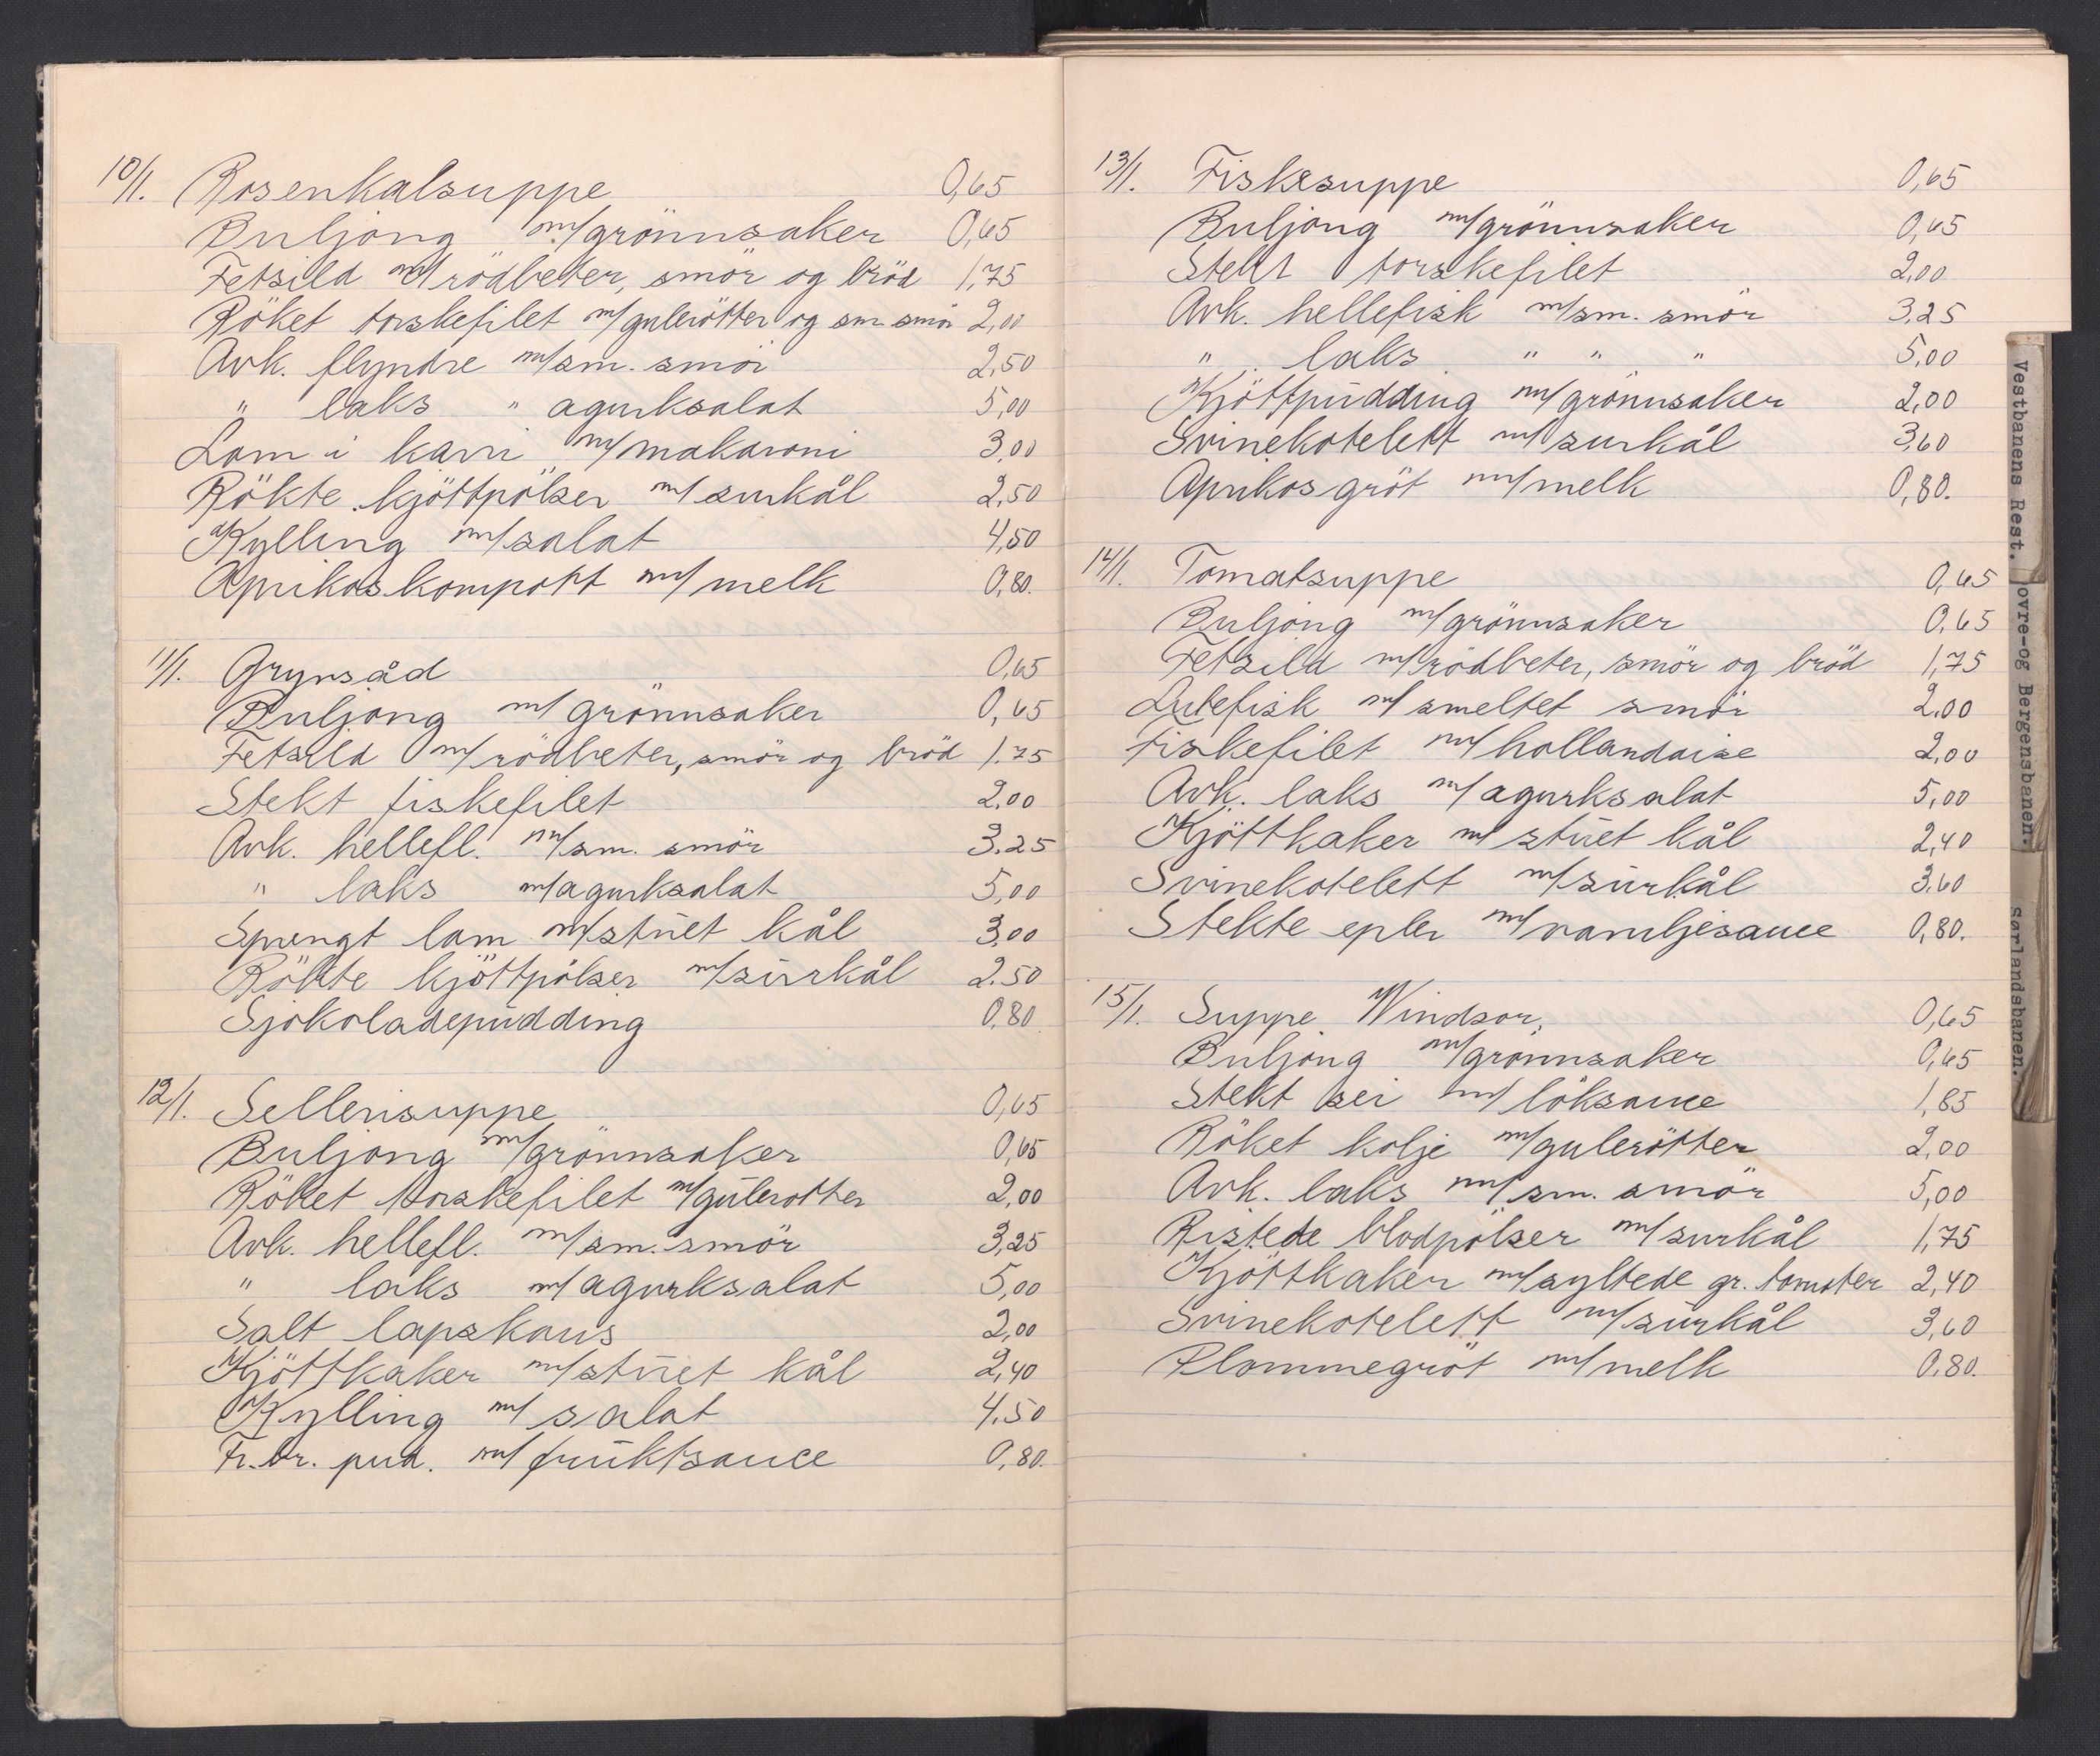 10/1. Rosenkalsuppe 0,65
Buljong m/grönnsaker 0,65
Fetsild m/rödbeter, smör og bröd 1,75
Röket torskefilet m/gulerötter og sm. smör 2,00
Avk. flyndre m/sm. smör 2,50
" laks " agurksalat 5,00
Lam i karri m/makaroni 3,00
Rökte kjöttpölser m/surkål 2,50
Kylling m/salat 4,50
Aprikoskompott m/melk 0,80.
11/1. Grynsåd 0,65
Buljong m/grönnsaker 0,65
Fetsild m/rödbeter, smör og bröd 1.75
Stekt fiskefilet 2.00
Avk. hellefl. m/sm. smör 3.25
" laks m/agurksalat 5,00
Sprengt lam m/stuet kål 3,00
Rökte kjöttpölser m/surkål 2.50
Sjokoladepudding 0,80
12/1. Sellerisuppe 0,65
Buljong m/grönnsaker 0,65
Röket torskefilet m/gulerotter 2,00
Avk. hellefl. m/sm. smör 3,25
" laks m/agurksalat 5,00
Salt lapskaus 2,00
Kjöttkaker m/stuet kål 2,40
Kylling m/salat 4.50
Fr. br. pud. m/fruktsauce 0,80.
13/1. Fiskesuppe 0,65
Buljong m/grönnsaker 0,65
Stekt torskefilet 2,00
Avk. hellefisk m/sm. smör 3,25
" laks " " " 5,00
Kjöttpudding m/grönnsaker 2,00
Svinekotelett m/surkål 3,60
Aprikosgröt m/melk 0,80.
14/1. Tomatsuppe 0,65
Buljong m/grönnsaker 0,65
Fetsild m/rödbeter, smör og bröd 1,75
Lutefisk m/smeltet smör 2.00
Fiskefilet m/hollandaise 2,00
Avk. laks m/agurksalat 5,00
Kjöttkaker m/stuet kål 2,40
Svinekotelett m/surkål 3.60
Stekte epler m/vaniljesauce 0,80.
15/1. Suppe Windsor, 0,65
Buljong m/grönnsaker 0,65
Stekt sei m/löksauce 1,85
Röket kolje m/gulerötter 2,00
Avk. laks m/sm. smör 5,00
Ristede blodpölser m/surkål 1,75
Kjöttkaker m/syltede gr. tomater 2,40
Svinekotelett m/surkål 3,60
Plommegröt m/melk 0.80.
Vestbanens Rest.
ovre-og Bergensbanen.
Sørlandsbanen.